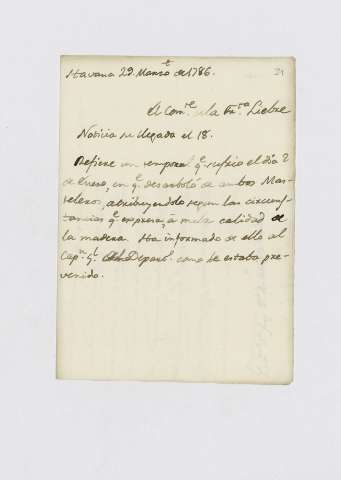 Havana 29 Marzo de 1786. 21
El Com.te de la Fr.ta Liebre
Noticia su llegada el 18.
Refiere un temporal q.e sufrio el dia 2
de Enero, en q.e desarboló de ambos Mas-
teleros, atribuyendolo segun las circuns-
tancias q.e expresa, a mala calidad de
la madera. Ha informado de ello al
Cap.n g.l del Depart.o como le estaba pre-
venido.